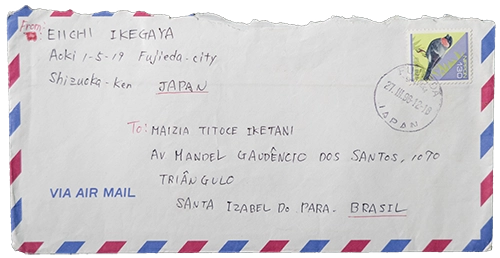 From:
EIICHI IKEGAYA
Aoki 1-5-19 Fujieda-city
Shizuoka-ken JAPAN
To: MAIZIA TITOCE IKETANI
AV MANDEL GAUDÊNCIO DOS SANTOS, 1070
TRIÂNGULO
SANTA IZABEL DO PARA. BRASIL
VIA AIR MAIL
27.III.96.12-18
JAPAN
130